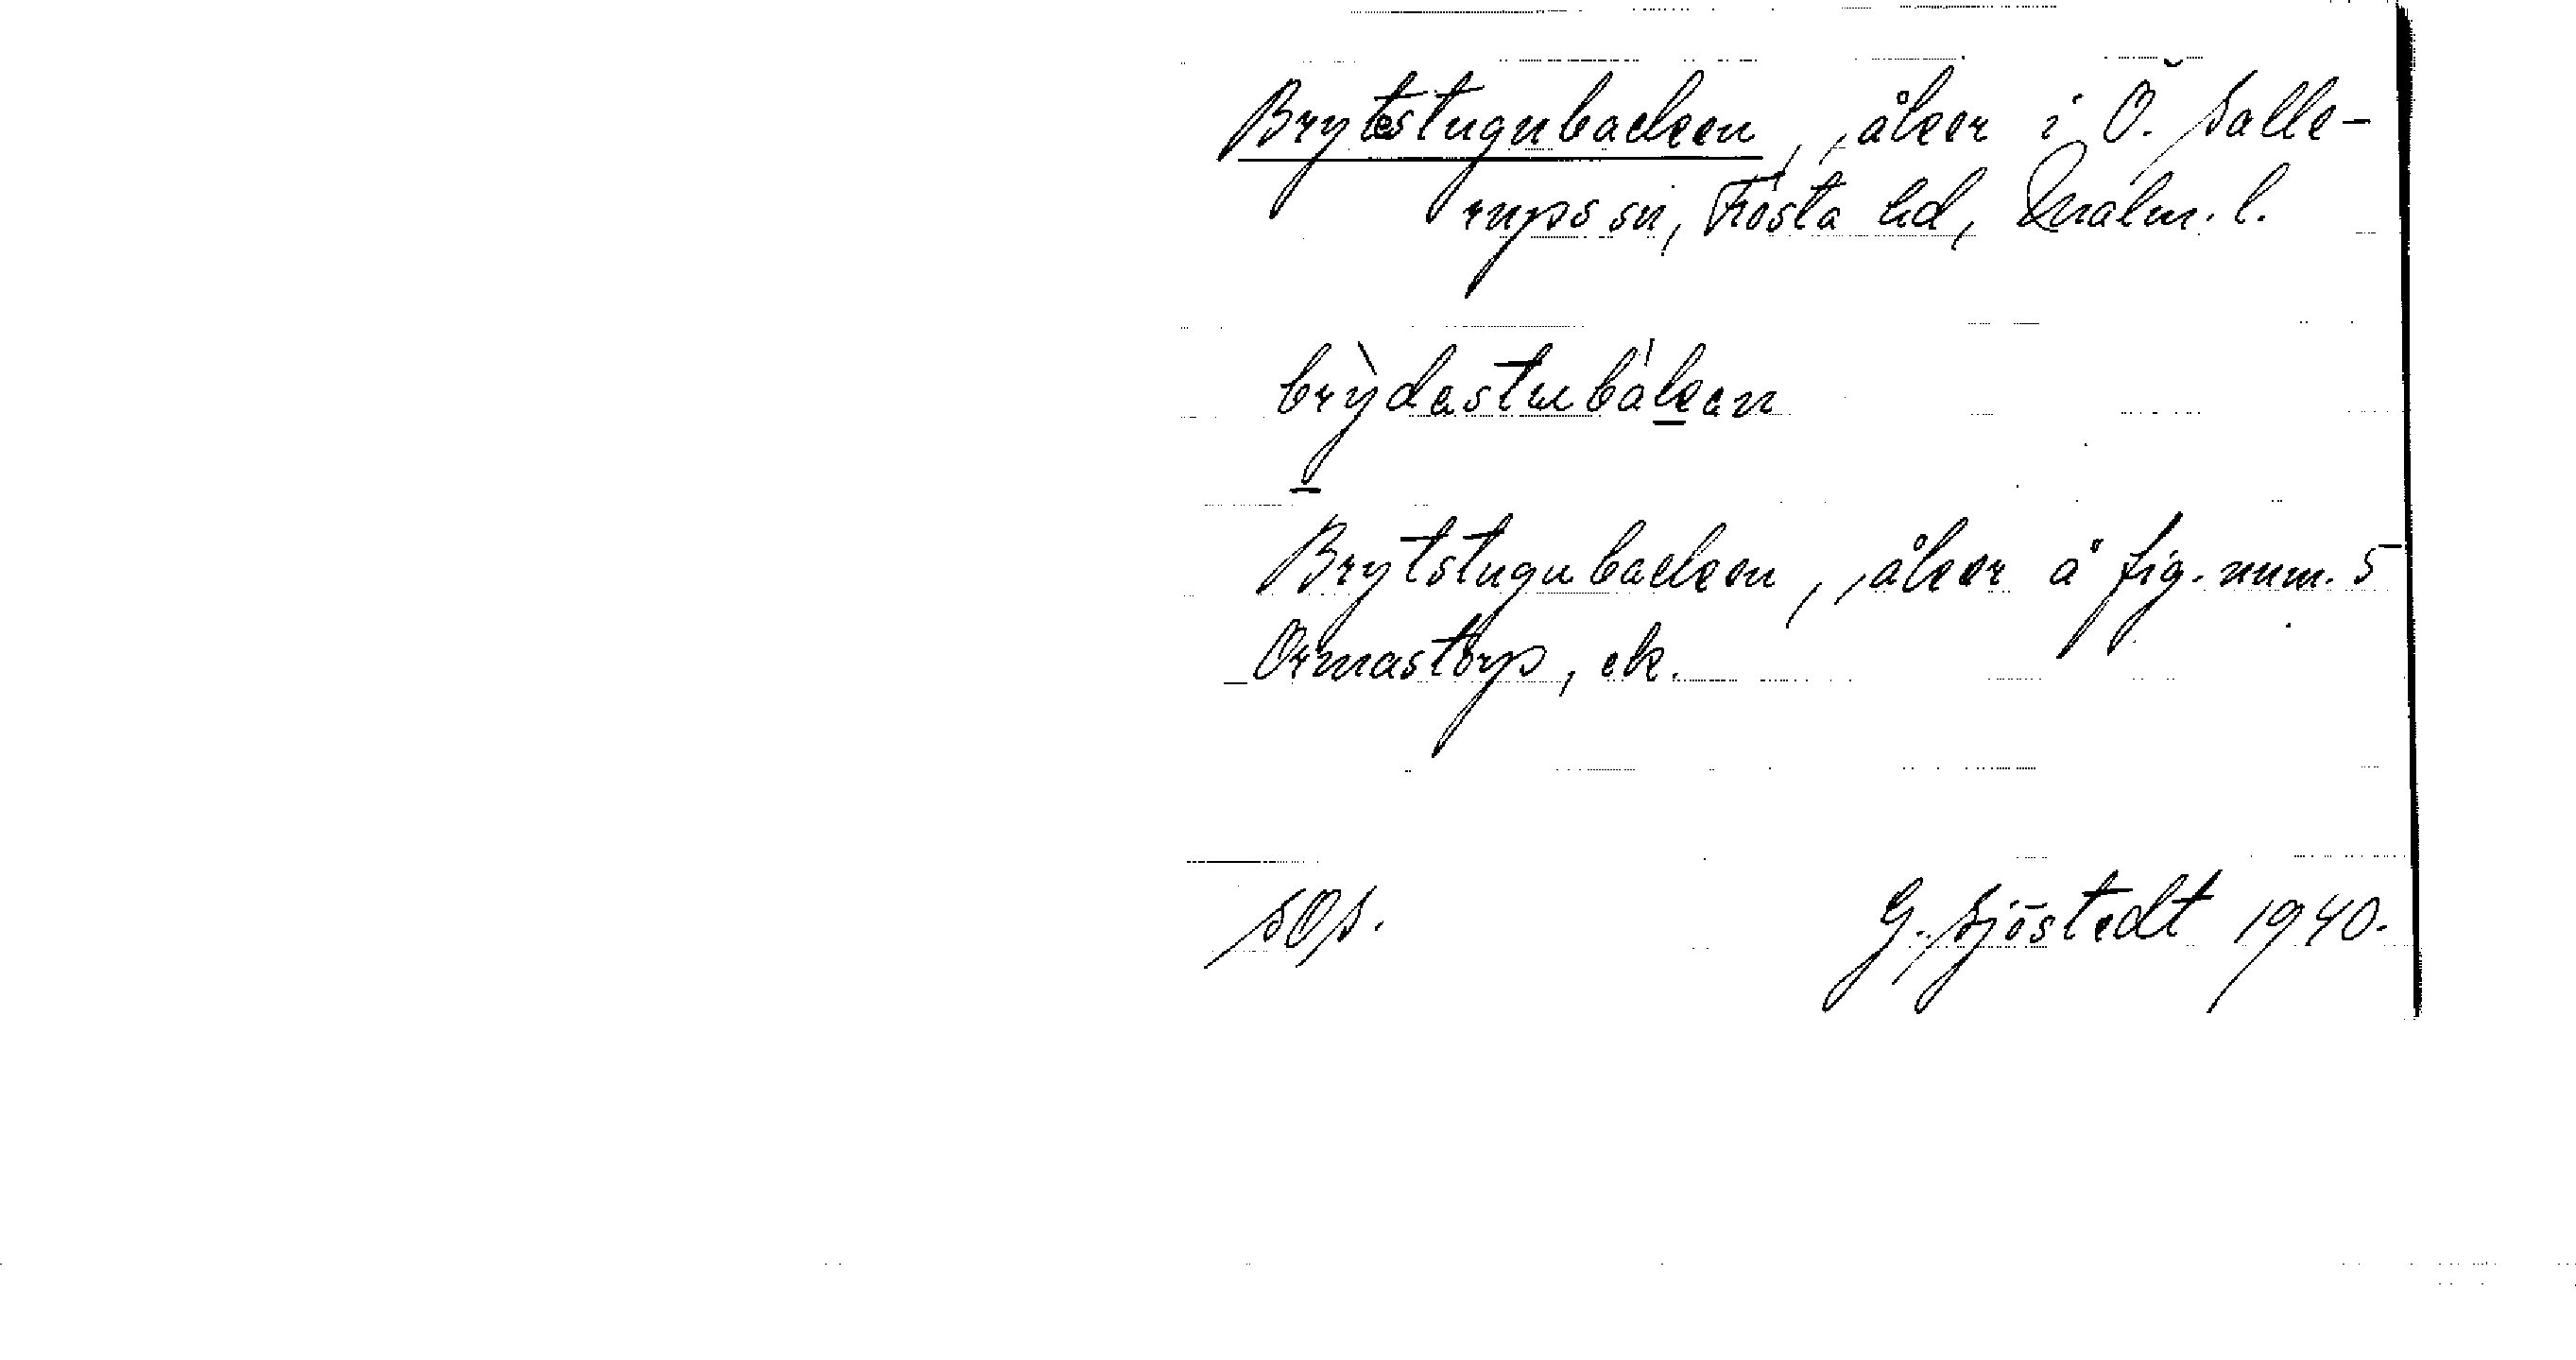 Brytestugubacken, åker i Ö. Salle-
rups sn, Frosta hd, Malm. l.
brỳdestubákean
Brytstugubacken, åker å fig. num. 5
Ormastorp, ek.
SOS.
G. Sjöstedt 1940.